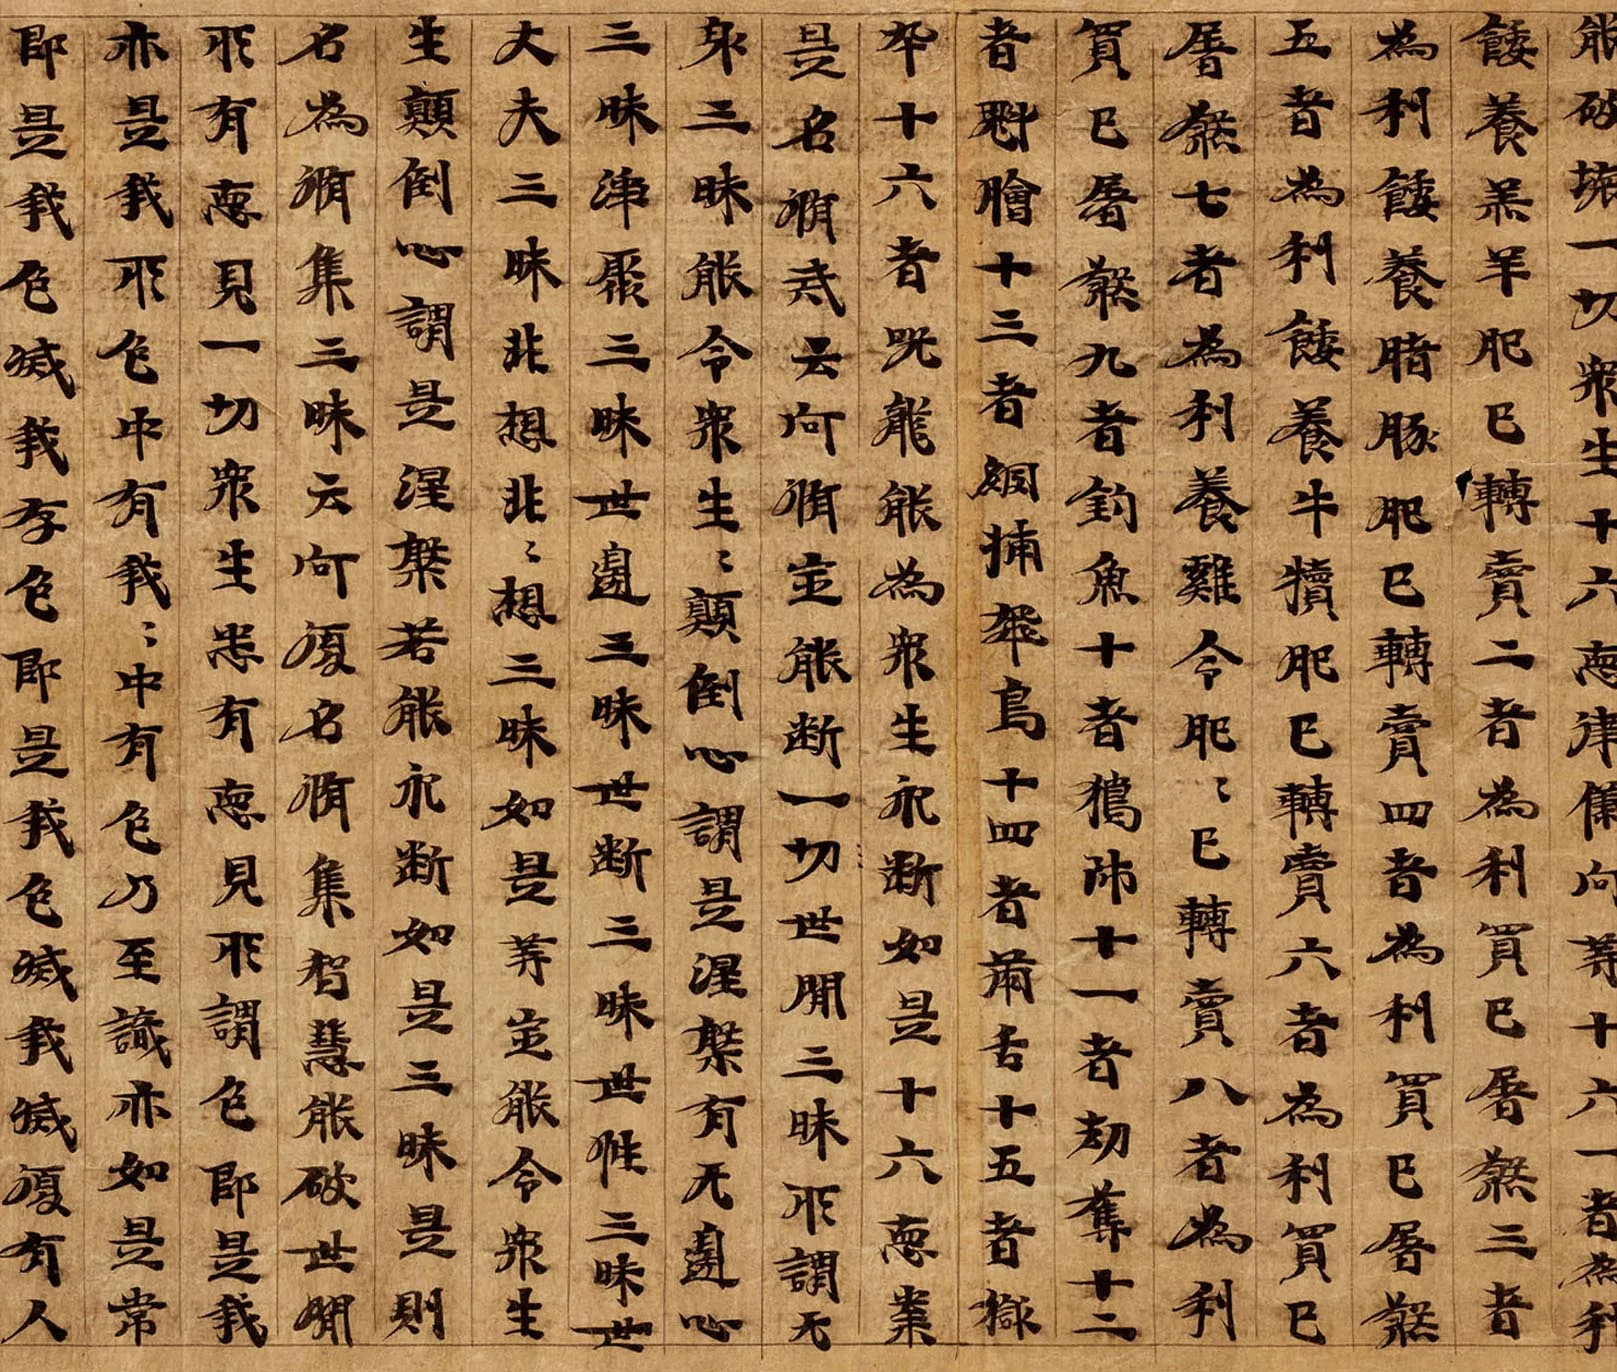 能破壞一切衆生十六惡律儀何等十六一者為利
餧養羔羊肥已轉賣二者為利買已屠煞三者
為利餧養猪豚肥已轉賣四者為利買已屠煞
五者為利餧養牛犢肥已轉賣六者為利買已
屠煞七者為利養雞令肥〻已轉賣八者為利
買已屠煞九者釣魚十者獵師十一者劫奪十二
者魁膾十三者網捕飛鳥十四者兩舌十五者獄
卒十六者呪龍能為衆生永断如是十六惡業
是名修戒云何修定能断一切世間三昧所謂无
身三昧能令衆生〻顛倒心謂是涅槃有无邊心
三昧淨聚三昧世邊三昧世断三昧世性三昧世
丈夫三昧非想非〻想三昧如是等定能令衆生
生顛倒心謂是涅槃若能永断如是三昧是則
名為修集三昧云何復名修集智慧能破世間
所有惡見一切衆生悉有惡見所謂色即是我
亦是我所色中有我〻中有色乃至識亦如是常
即是我色滅我存色即是我色滅我滅復有人